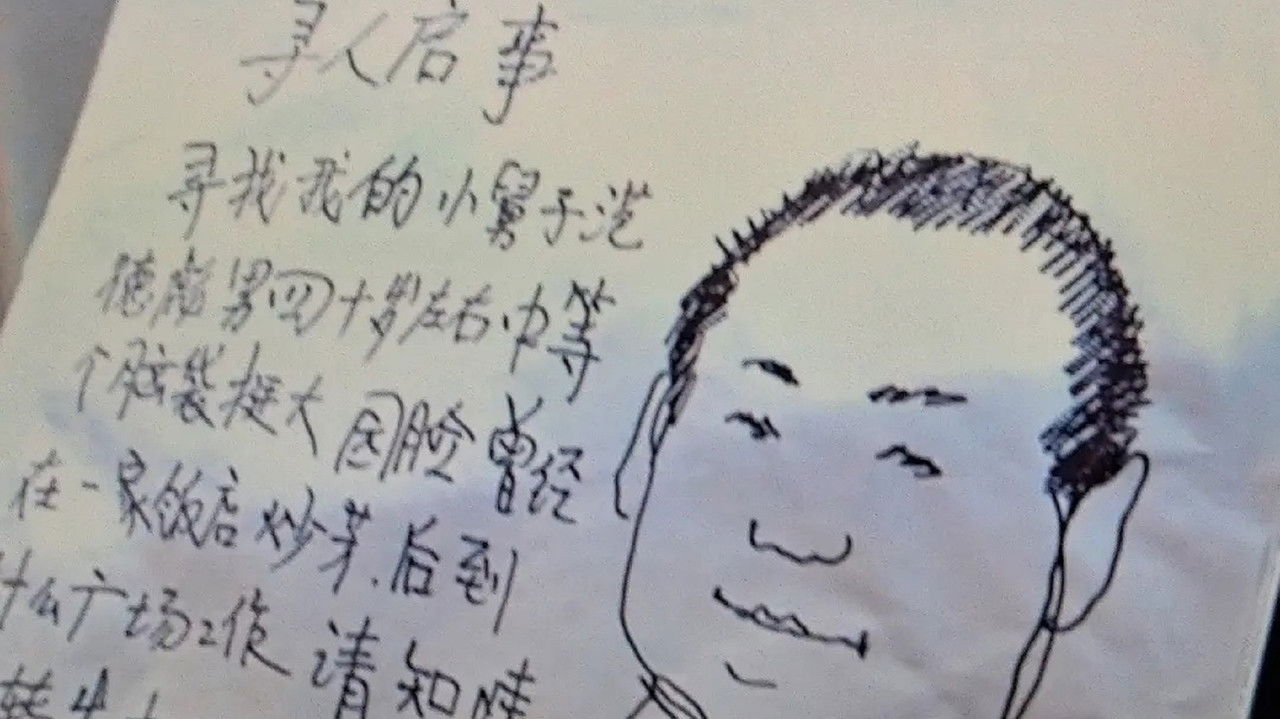 寻人启事
寻找我的小舅子范
德彪男四十岁左右中等
个脑袋挺大园脸曾经
在一家饭店炒菜.后到
什么广场工作请知